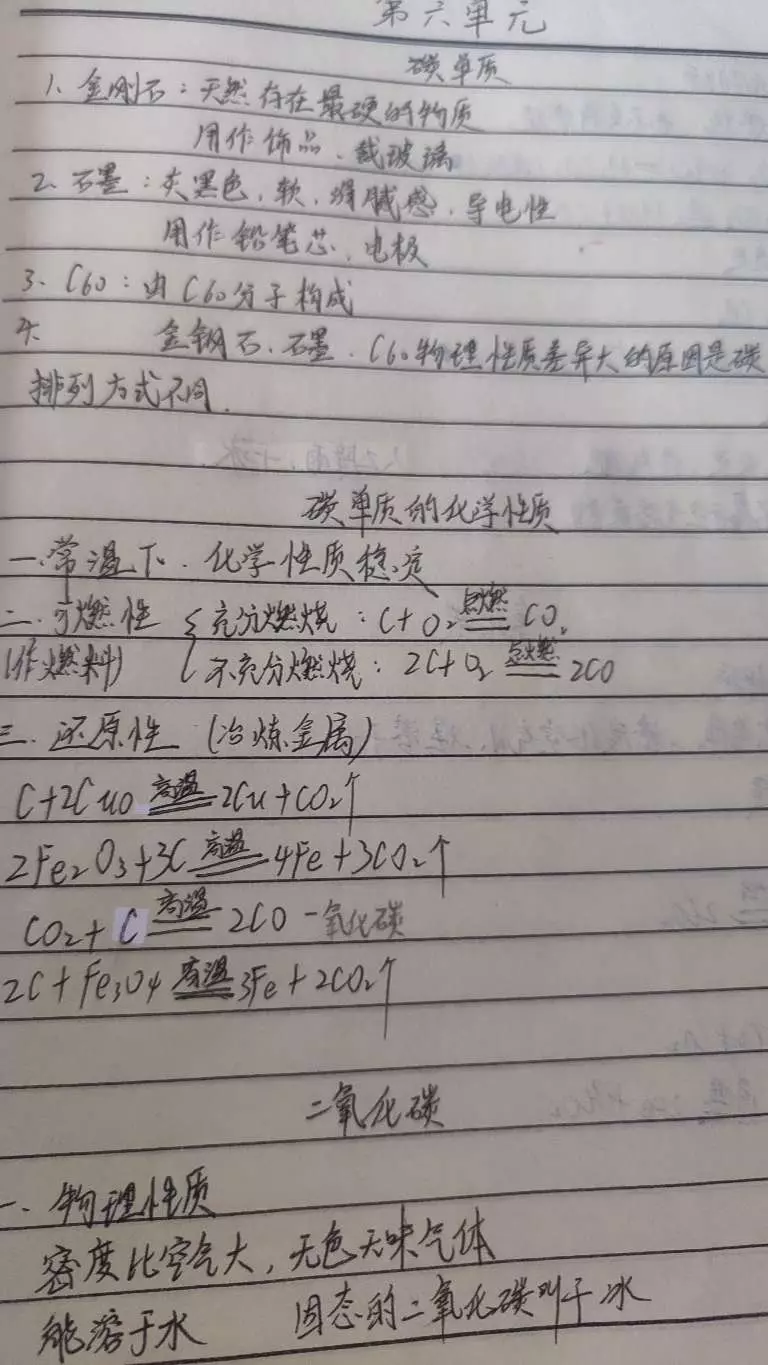 第六单元
碳单质
1、金刚石：天然存在最硬的物质
用作饰品、裁玻璃
2、石墨：灰黑色，软，滑腻感，导电性
用作铅笔芯，电极
3、C60：由C60分子构成
4、金钢石、石墨、C60物理性质差异大的原因是碳
排列方式不同.
碳单质的化学性质
一、常温下．化学性质稳定
二.可燃性 { 充分燃烧：C+O₂ 点燃═ CO₂
(作燃料) 不充分燃烧：2C+O₂ 点燃═ 2CO
三.还原性 (冶炼金属)
C+2CuO 高温═ 2Cu+CO₂↑
2Fe₂O₃+3C 高温═ 4Fe+3CO₂↑
CO₂+C 高温═ 2CO 一氧化碳
2C+Fe₃O₄ 高温═ 3Fe+2CO₂↑
二氧化碳
一、物理性质
密度比空气大，无色无味气体
能溶于水 固态的二氧化碳叫干冰